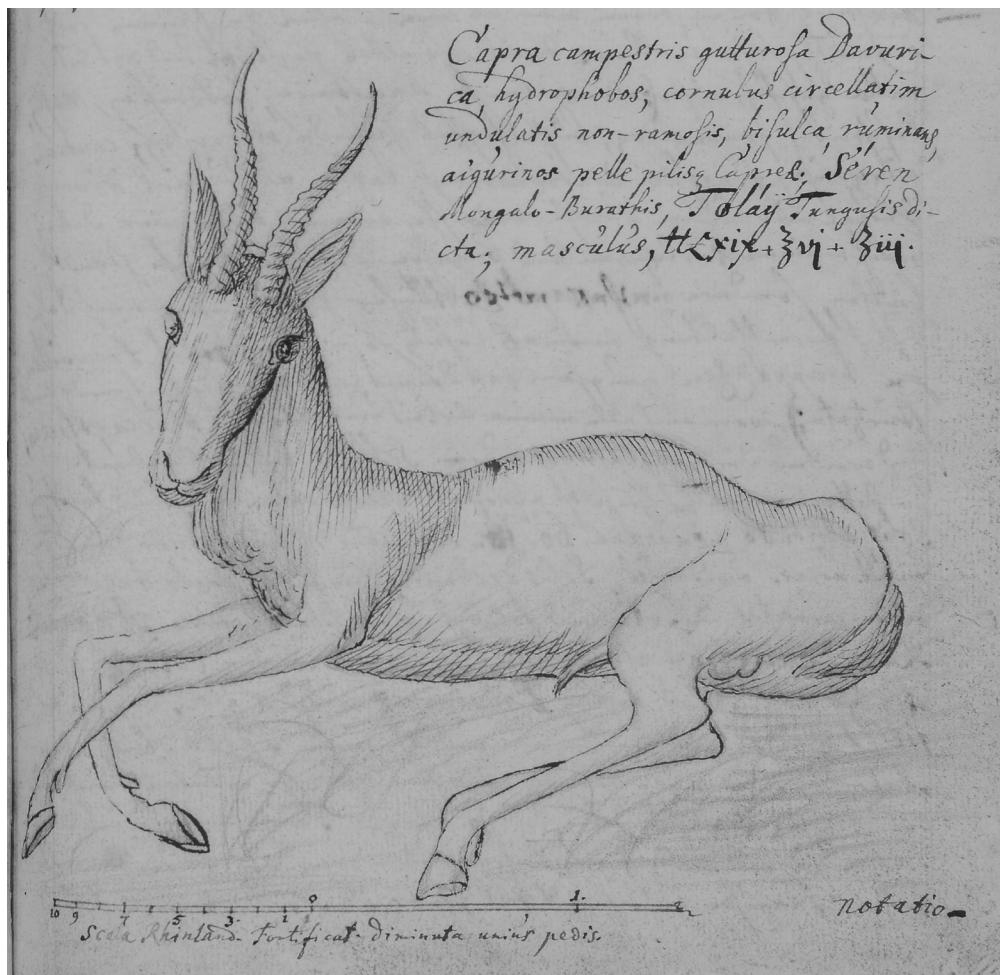 Capra campestris gutturosa Davuri-
ca, hydrophobos, cornubus circellatim
undulatis non-ramosis, bisulca, ruminans,
aigurinos pelle pilisq Capreæ; Seren
Mongalo-Burathis, Tolaÿ Tungusis di-
cta; masculus, xix + ʒvj + ʒiij.
0 1. 2
10 9 7 5 3 1
Scala Rhinland. Fortificat. diminuta unius pedis.
notatio-